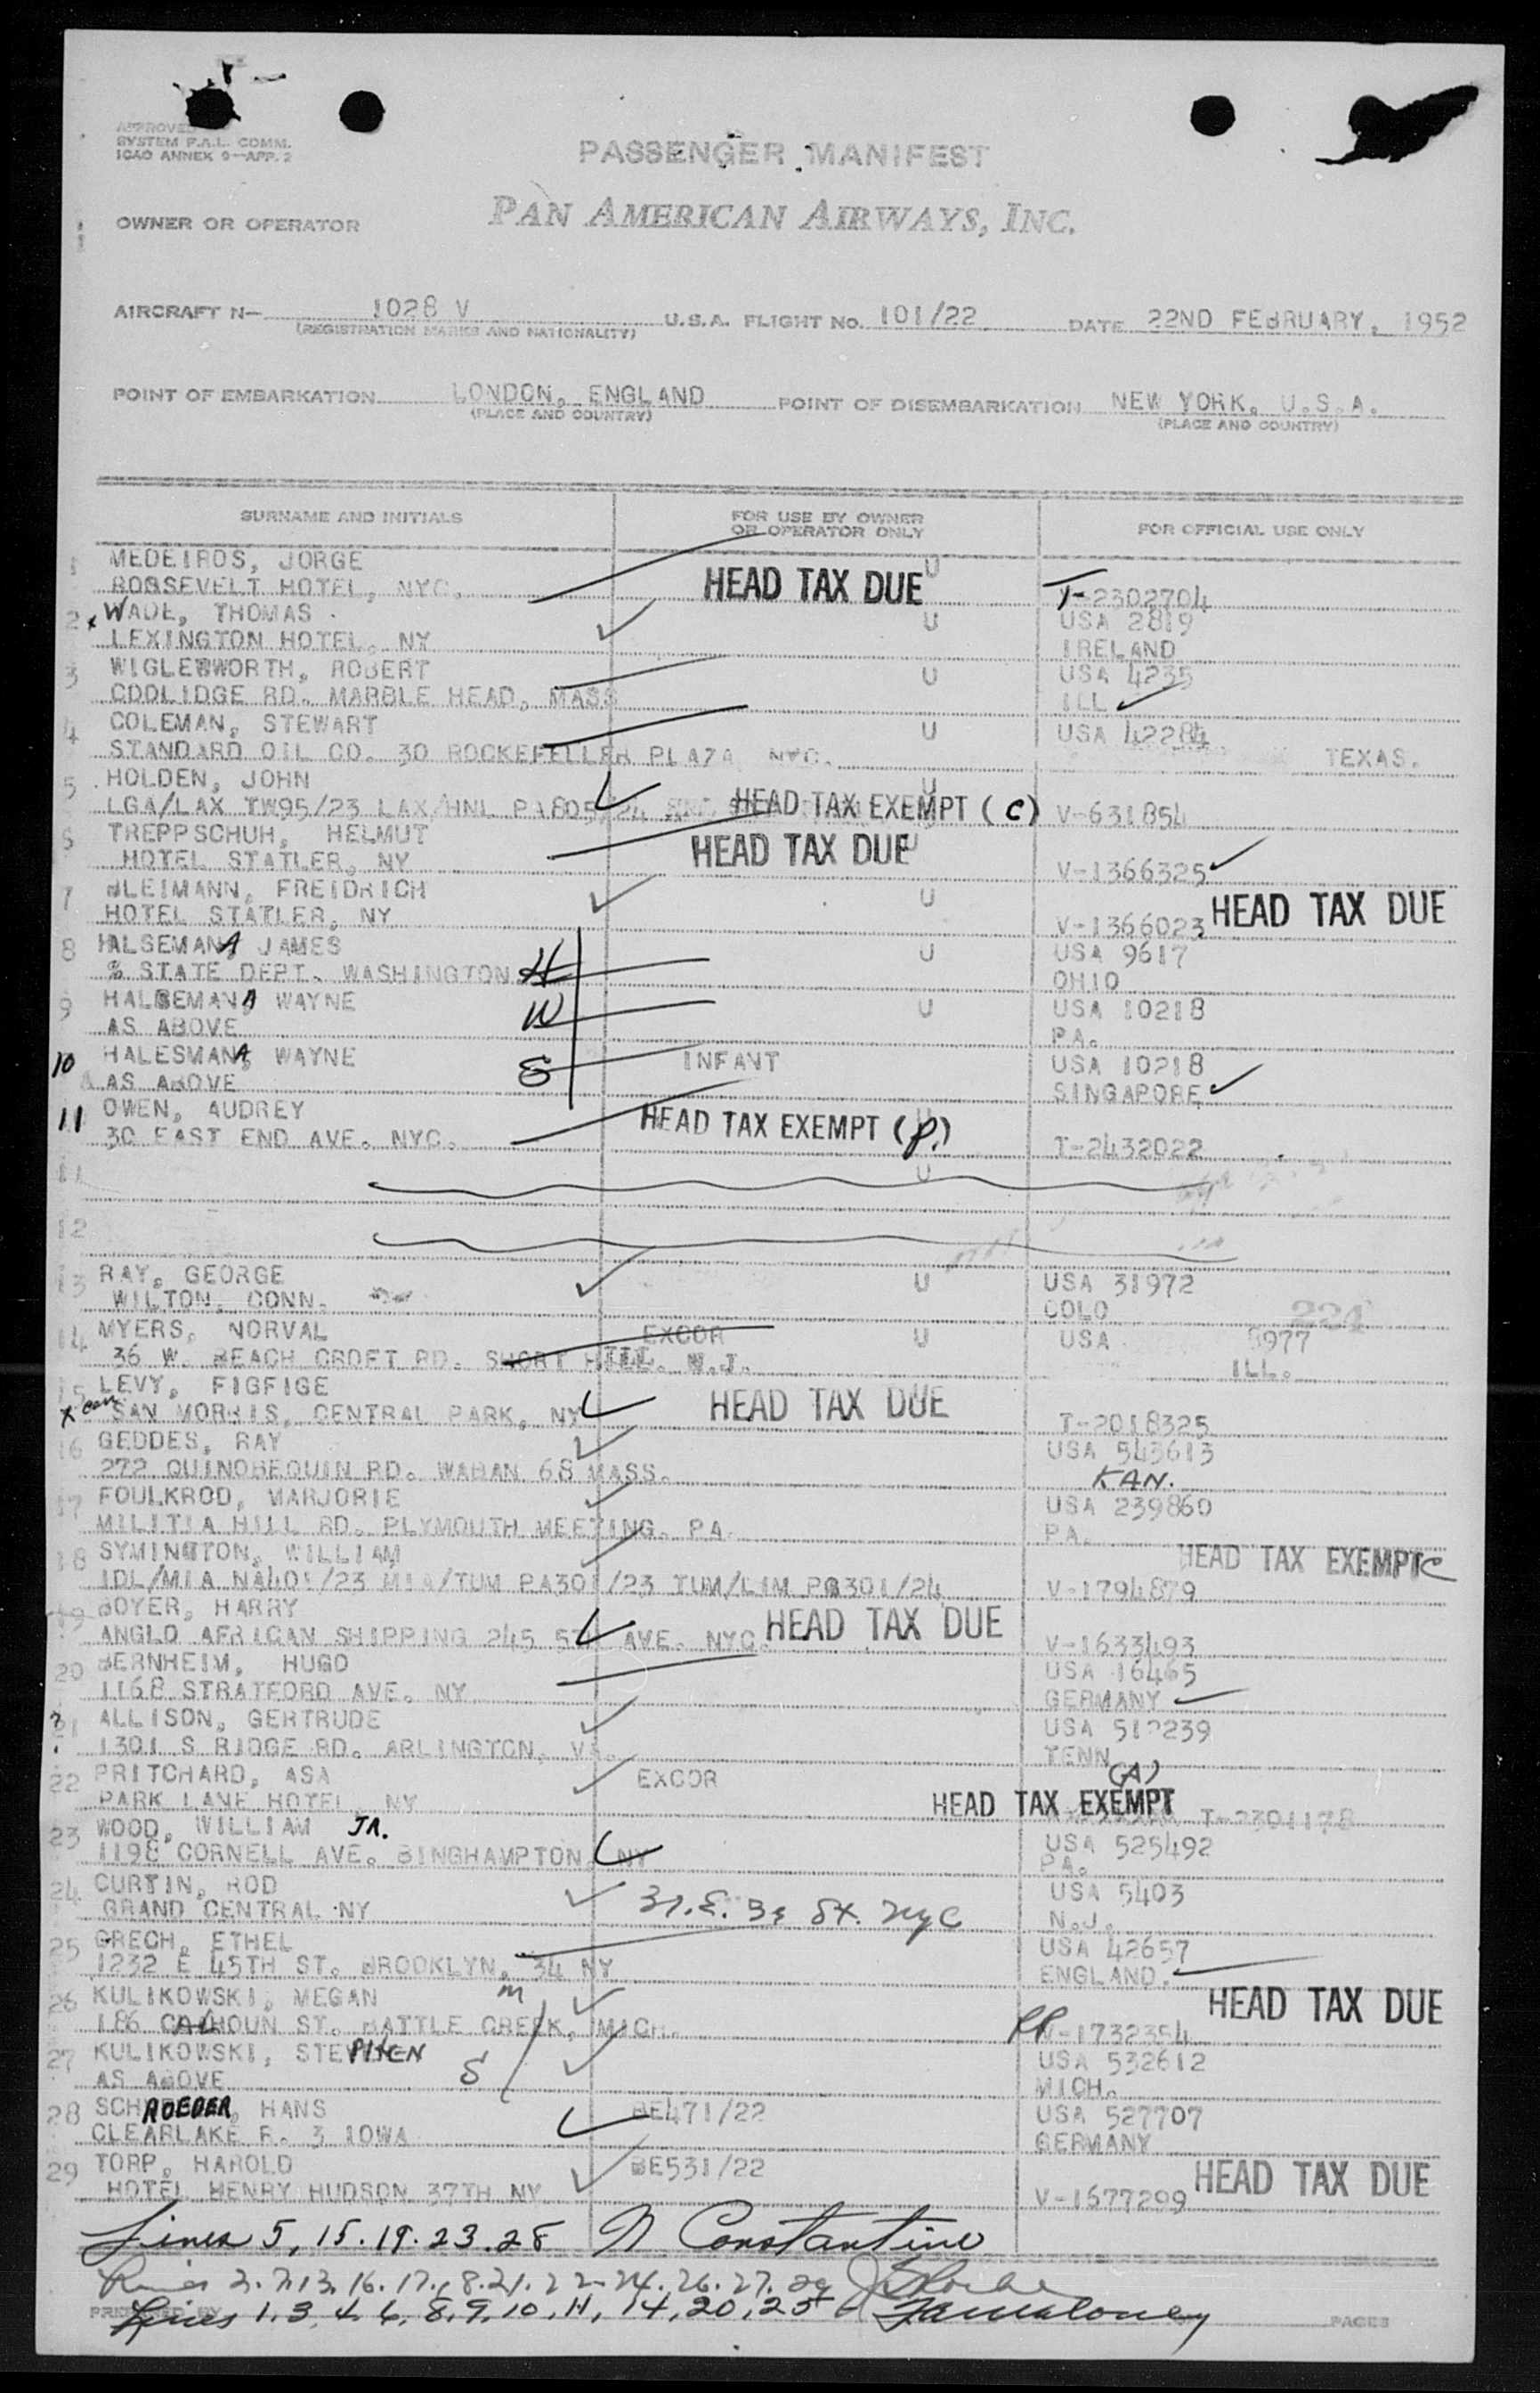 APPROVED
SYSTEM P.A.L. COMM.
ICAO ANNEX 9-APP. 2
PASSENGER MANIFEST
OWNER OR OPERATOR PAN AMERICAN AIRWAYS, INC.
AIRCRAFT N- 1028 V U.S.A. FLIGHT NO. 101/22 DATE 22ND FEBRUARY, 1952
(REGISTRATION MARKS AND NATIONALITY)
POINT OF EMBARKATION LONDON, ENGLAND POINT OF DISEMBARKATION NEW YORK, U.S.A.
(PLACE AND COUNTRY) (PLACE AND COUNTRY)
SURNAME AND INITIALS FOR USE BY OWNER OR OPERATOR ONLY FOR OFFICIAL USE ONLY
1 MEDEIROS, JORGE U
ROOSEVELT HOTEL, NYC. HEAD TAX DUE T-2302704
2 x WADE, THOMAS U USA 2819
LEXINGTON HOTEL, NY IRELAND
3 WIGLEWWORTH, ROBERT U USA 4235
COOLIDGE RD. MARBLE HEAD, MASS ILL
4 COLEMAN, STEWART U USA 42284
STANDARD OIL CO. 30 ROCKEFELLER PLAZA NYC. TEXAS.
5 HOLDEN, JOHN U
LGA/LAX TW95/23 LAX/HNL PA805/24 HEAD TAX EXEMPT (C) V-631854
6 TREPPSCHUH, HELMUT U
HOTEL STATLER, NY HEAD TAX DUE V-1366325
7 BLEIMANN, FREIDRICH U
HOTEL STATLER, NY V-1366023 HEAD TAX DUE
8 HALSEMAN JAMES U USA 9617
% STATE DEPT. WASHINGTON H OHIO
9 HALSEMAN WAYNE U USA 10218
AS ABOVE W PA.
10 HALESMAN, WAYNE INFANT USA 10218
AS ABOVE S SINGAPORE
11 OWEN, AUDREY U
30 EAST END AVE. NYC. HEAD TAX EXEMPT (P.) T-2432022
11 U
12
13 RAY, GEORGE U USA 31972
WILTON, CONN. COLO
224
14 MYERS, NORVAL EXCOR U USA 8977
36 W. BEACH CROFT RD. SHORT HILL. N.J. ILL.
15 LEVY, FIGFIGE
x can SAN MORRIS, CENTRAL PARK, NY HEAD TAX DUE T-2018325
16 GEDDES, RAY USA 543613
272 QUINOBEQUIN RD. WABAN 68 MASS. KAN.
17 FOULKROD, MARJORIE USA 239860
MILITIA HILL RD. PLYMOUTH MEETING. PA. PA.
18 SYMINGTON, WILLIAM HEAD TAX EXEMPT C
IDL/MIA NA401/23 MIA/TUM PA301/23 TUM/LIM PG301/24 V-1794879
19 BOYER, HARRY
ANGLO AFRICAN SHIPPING 245 5TH AVE. NYC. HEAD TAX DUE V-1633493
20 BERNHEIM, HUGO USA 16465
1168 STRATFORD AVE. NY GERMANY
21 ALLISON, GERTRUDE USA 512239
1301 S RIDGE RD. ARLINGTON, VA. TENN
22 PRITCHARD, ASA EXCOR (A)
PARK LANE HOTEL, NY HEAD TAX EXEMPT T-2301178
23 WOOD, WILLIAM JR. USA 525492
1198 CORNELL AVE. BINGHAMPTON, NY PA.
24 CURTIN, ROD USA 5403
GRAND CENTRAL NY N.J.
25 GRECH, ETHEL USA 42657
1232 E 45TH ST. BROOKLYN, 34 NY ENGLAND.
26 KULIKOWSKI, MEGAN M HEAD TAX DUE
186 CALHOUN ST. BATTLE CREEK, MICH. V-1732354
27 KULIKOWSKI, STEPHEN USA 532612
AS ABOVE S MICH.
28 SCHROEDER, HANS BE471/22 USA 527707
CLEARLAKE R. 3 IOWA GERMANY
29 TORP, HAROLD BE531/22 HEAD TAX DUE
HOTEL HENRY HUDSON 37TH NY V-1677299
Lines 5, 15. 19. 23. 28 N Constantine
Lines 2. 7. 13. 16. 17. 18. 21. 22 24. 26. 27. 29
PREPARED BY Lines 1, 3, 4, 6, 8, 9, 10, 11, 14, 20, 25 PAGES